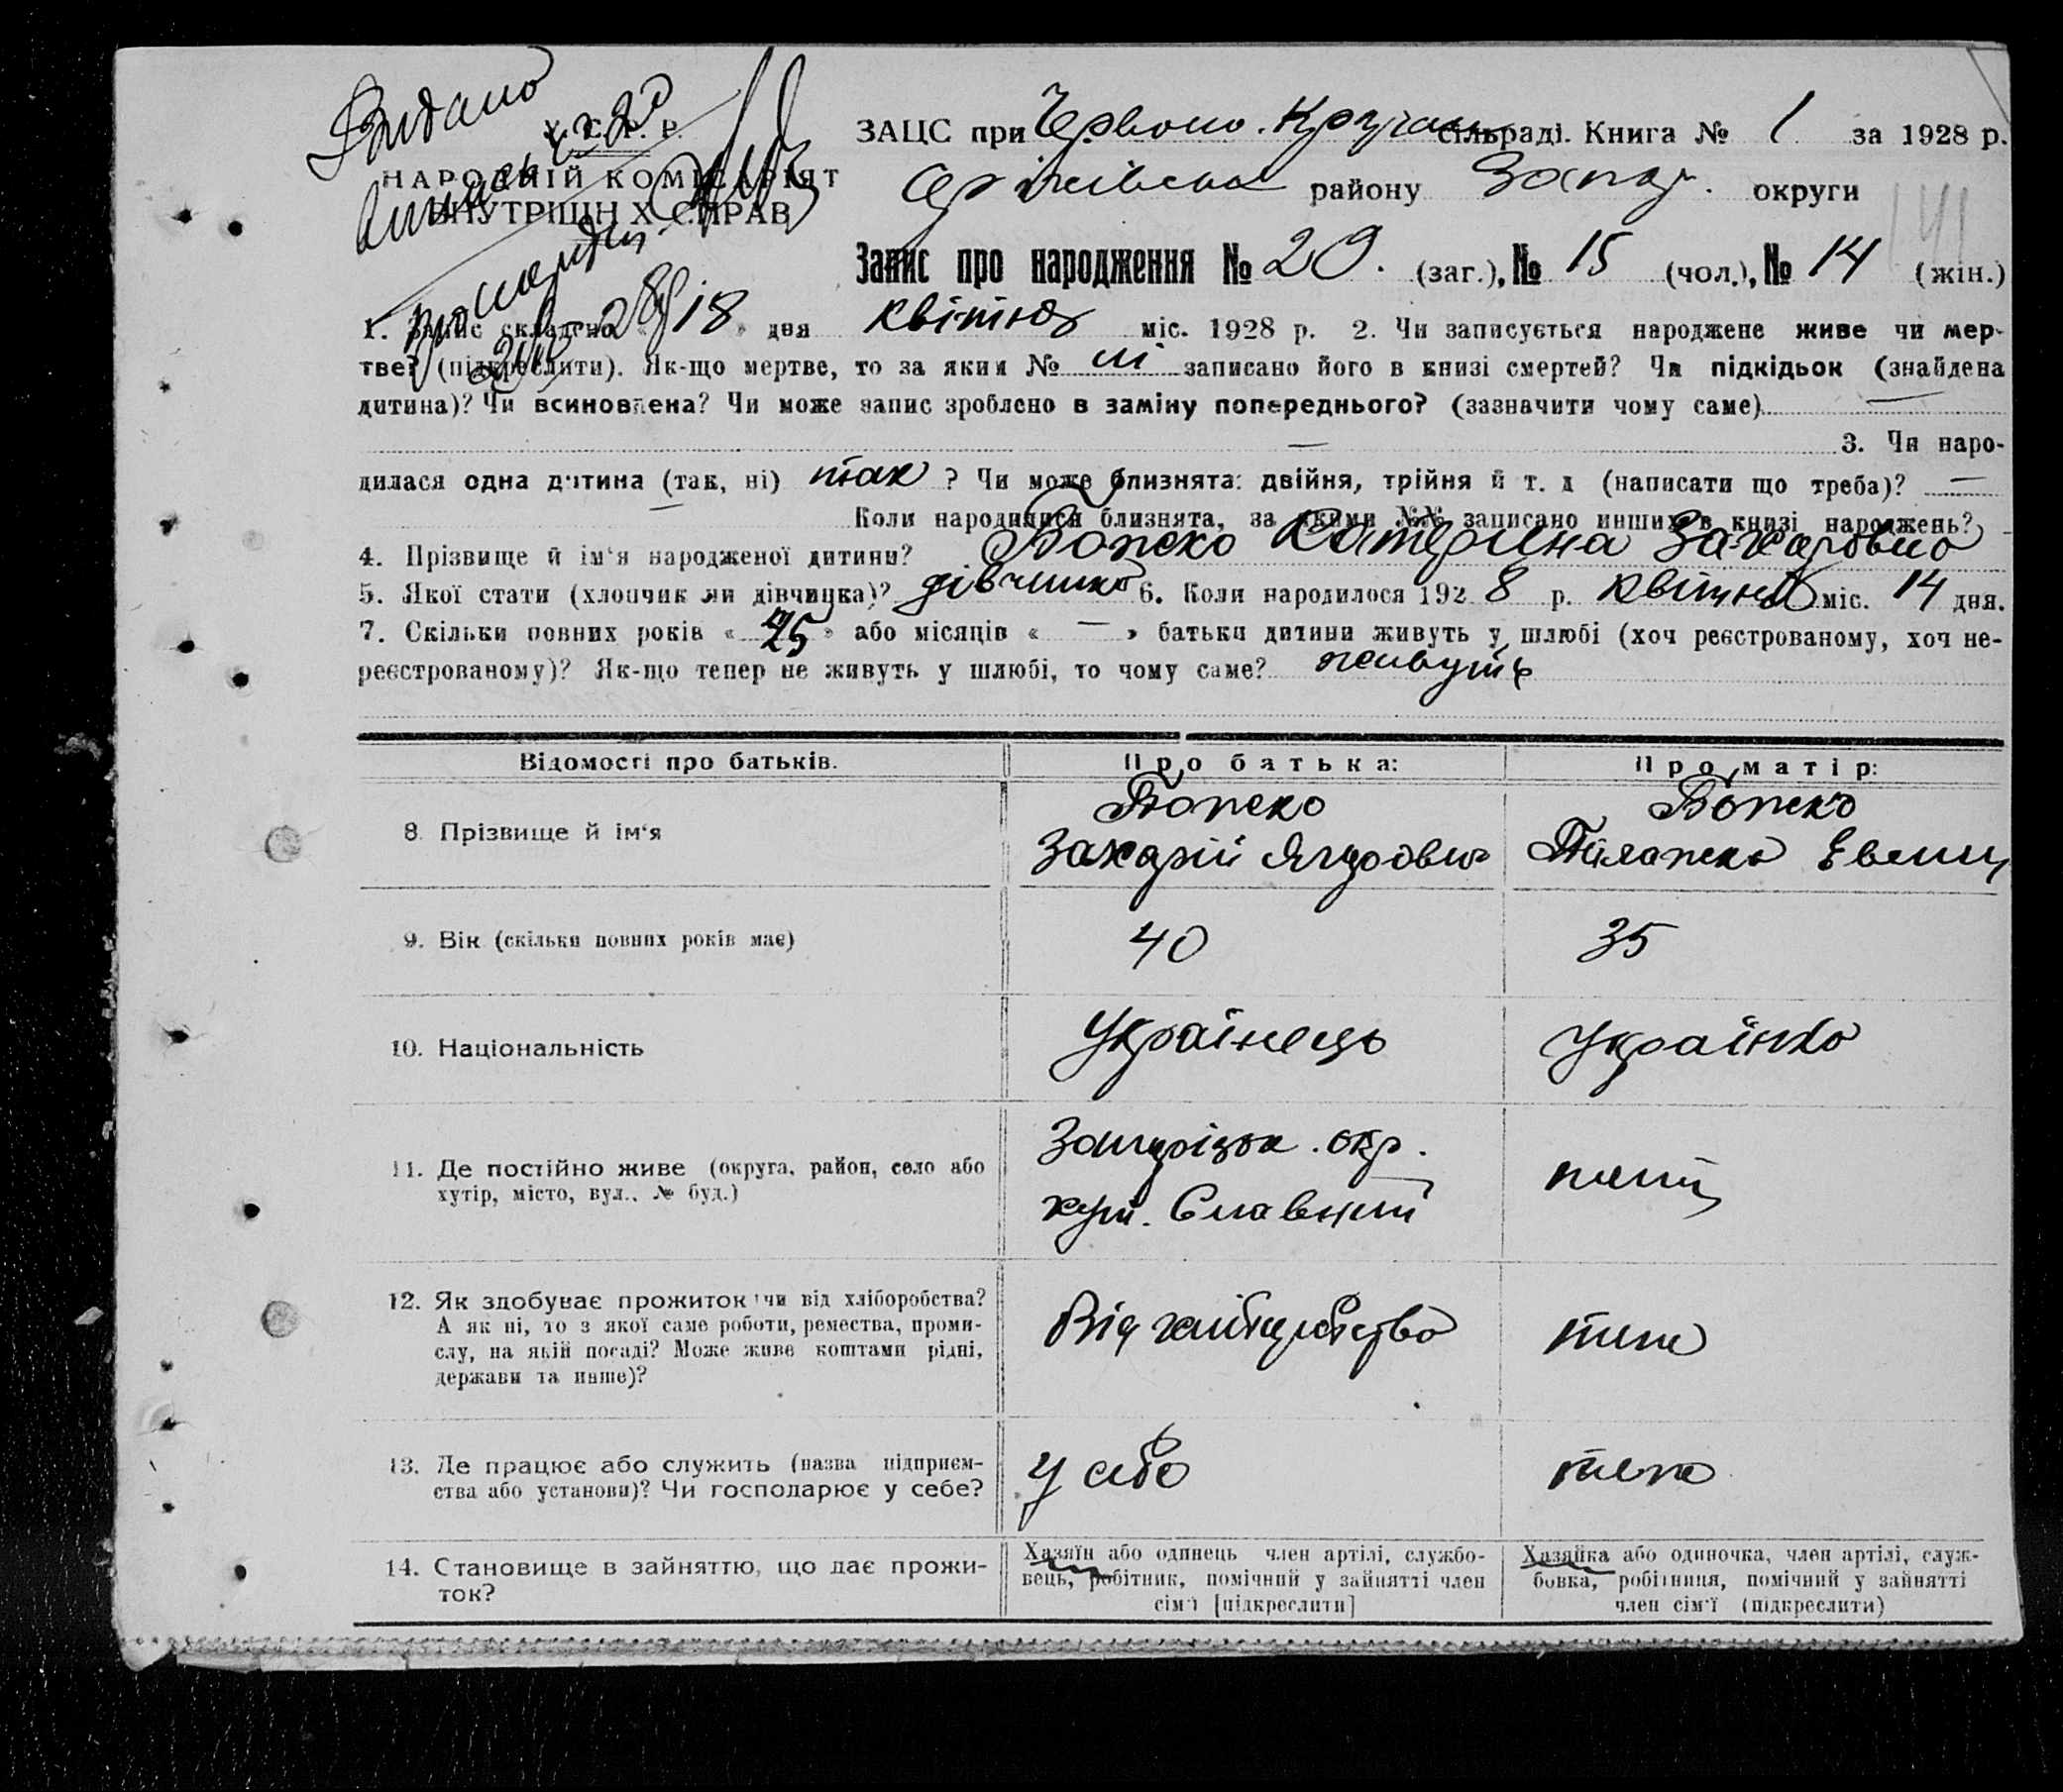 Видано
У. С. Р. Р.
НАРОДНІЙ КОМІСАРІЯТ
ВНУТРІШНІХ СПРАВ
ЗАЦС при Червоно. сільраді. Книга № 1 за 1928 р.
району Запор. округи
Запис про народження № 29. (заг.), № 15 (чол.), № 14 (жін.)
1. Запис складено «18» дня квітня міс. 1928 р. 2. Чи записується народжене живе чи мер-
тве? (підкреслити). Як-що мертве, то за яким № записано його в книзі смертей? Чи підкідьок (знайдена
дитина)? Чи всиновлена? Чи може запис зроблено в заміну попереднього? (зазначити чому саме) —
— 3. Чи наро-
дилася одна дитина (так, ні) так ? Чи може близнята: двійня, трійня й т. д (написати що треба)? —
— Коли народилися близнята, за якими №№ записано инших в книзі народжень?
4. Прізвище й ім'я народженої дитини? Катерина Захаровна
5. Якої стати (хлопчик чи дівчинка)? дівчинка 6. Коли народилося 1928 р. квітня міс. 14 дня.
7. Скільки повних років « » або місяців « — » батьки дитини живуть у шлюбі (хоч реєстрованому, хоч не-
реєстрованому)? Як-що тепер не живуть у шлюбі, то чому саме? живуть
Відомості про батьків. Про батька: Про матір:
8. Прізвище й ім'я
Захарій
9. Вік (скільки повних років має) 40 35
10. Національність Українець Українка
11. Де постійно живе (округа, район, село або
хутір, місто, вул., № буд.)
окр.
хут. Славний
12. Як здобуває прожиток чи від хліборобства?
А як ні, то з якої саме роботи, ремества, проми-
слу, на якій посаді? Може живе коштами рідні,
держави та инше)?
Від хліборобства теж
13. Де працює або служить (назва підприєм-
ства або установи)? Чи господарює у себе?
у себе теж
14. Становище в зайняттю, що дає прожи-
ток?
Хазяїн або одинець член артілі, службо-
вець, робітник, помічний у зайнятті член
сім'ї [підкреслити]
Хазяйка або одиночка, член артілі, служ-
бовка, робітниця, помічний у зайнятті
член сім'ї (підкреслити)